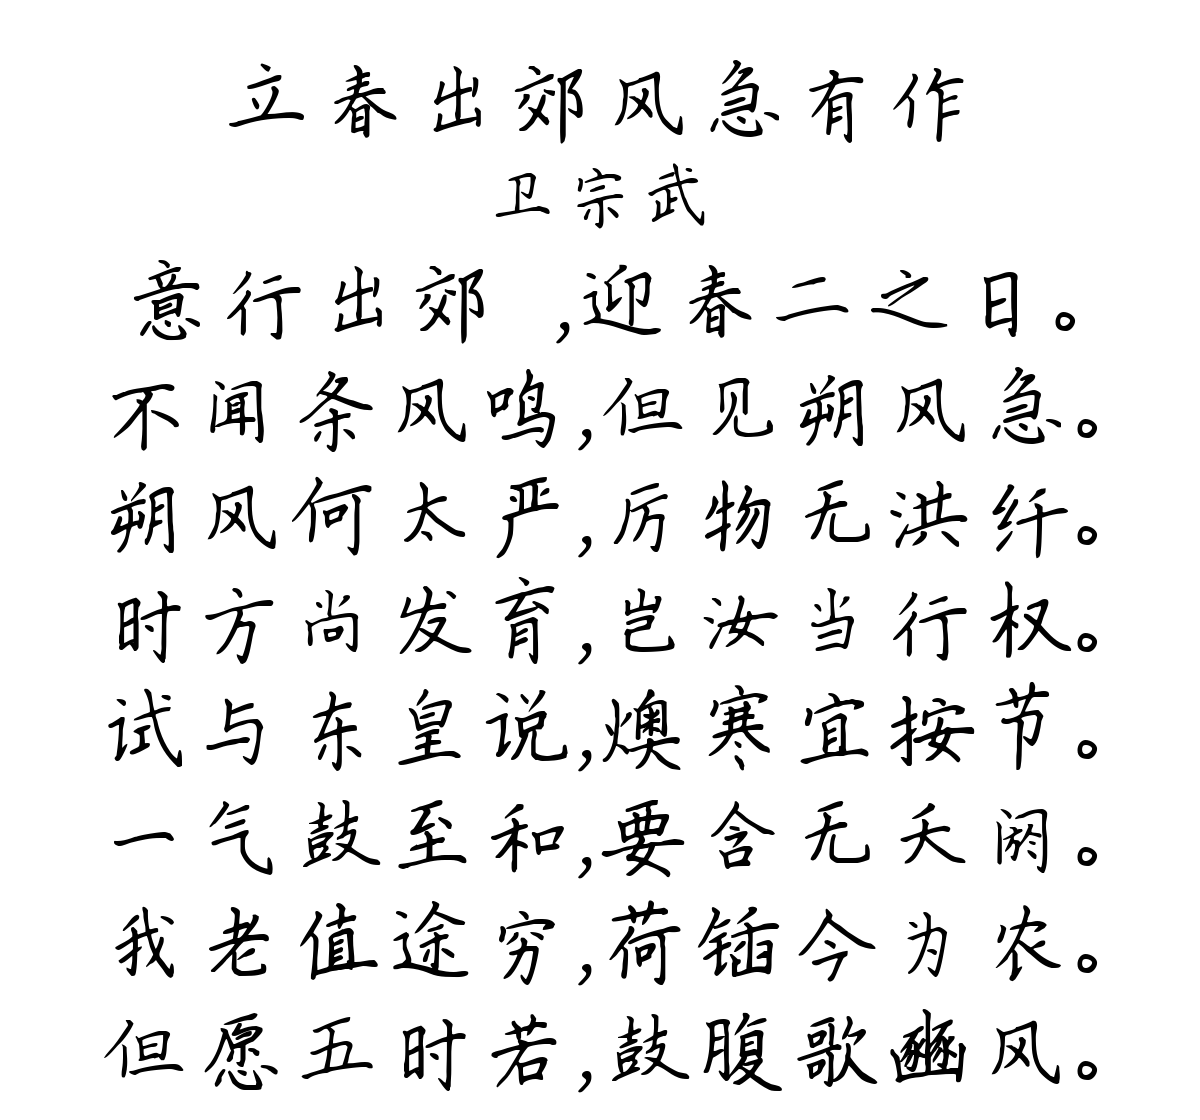 立春出郊风急有作
卫宗武
意行出郊 ,迎春二之日。
不闻条风鸣,但见朔风急。
朔风何太严,厉物无洪纤。
时方尚发育,岂汝当行权。
试与东皇说,燠寒宜按节。
一气鼓至和,要含无夭阏。
我老值途穷,荷锸今为农。
但愿五时若,鼓腹歌豳风。